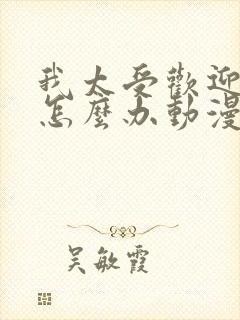 我太受歡迎
怎麼办動漫
吴敏霞